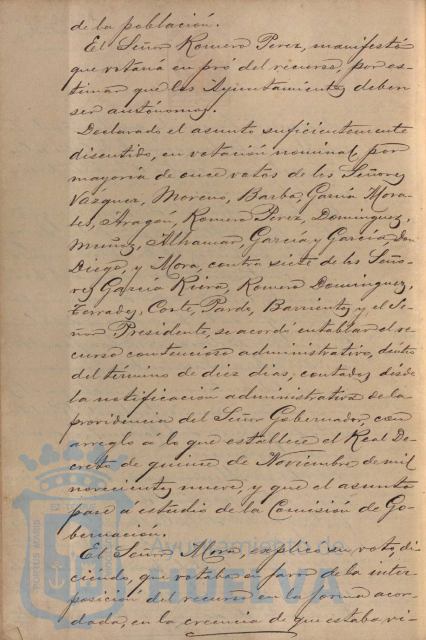 de la población.
El Señor Romero Perez, manifestó
que votaría en pró del recurso, por es-
timar que los Ayuntamientos deben
ser autónomos.
Declarado el asunto suficientemente
discutido, en votación nominal, por
mayoría de once votos de los Señores
Vázquez, Moreno, Barba, García Mora-
les, Aragón, Romero Perez, Dominguez,
Muñoz, Alhamar, García y García, Don
Diego, y Mora, contra siete de los Seño-
res García Riera, Romero Dominguez,
Terrades, Corte, Pardo, Barrientos y el Se-
ñor Presidente, se acordó entablar el re-
curso contencioso administrativo, dentro
del término de diez dias, contados desde
la notificación administrativa de la
providencia del Señor Gobernador, con
arreglo á lo que establece el Real De-
creto de quince de Noviembre de mil
novecientos nueve, y que el asunto
pase a estudio de la Comisión de Go-
bernación.
El Señor Mora, explicó su voto di-
ciendo, que votaba en favor de la inter-
posición del recurso en la forma acor-
dada, en la creencia de que estaba vi-
PORTUS MARIS
Ayuntamiento de
HUELVA